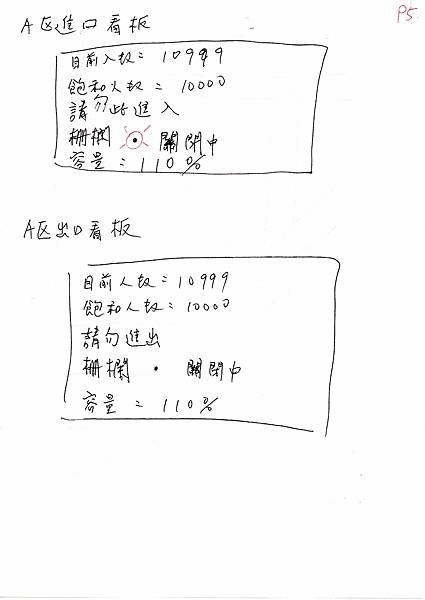 P5
A区進口看板
目前人数= 10999
飽和人数= 10000
請勿此進入
柵欄 關閉中
容量 = 110%
A区出口看板
目前人数= 10999
飽和人数= 10000
請勿進出
柵欄 · 關閉中
容量 = 110%